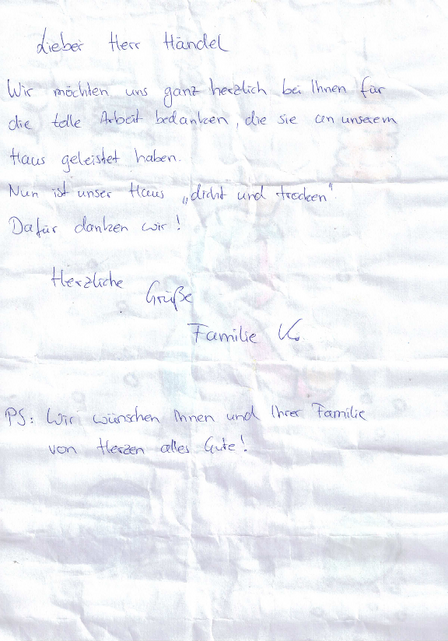 Lieber Herr Händel
Wir möchten uns ganz herzlich bei Ihnen für
die tolle Arbeit bedanken, die sie an unserem
Haus geleistet haben.
Nun ist unser Haus „dicht und trocken"
Dafür danken wir!
Herzliche
Grüße
Familie K.
PS: Wir wünschen Ihnen und Ihrer Familie
von Herzen alles Gute!